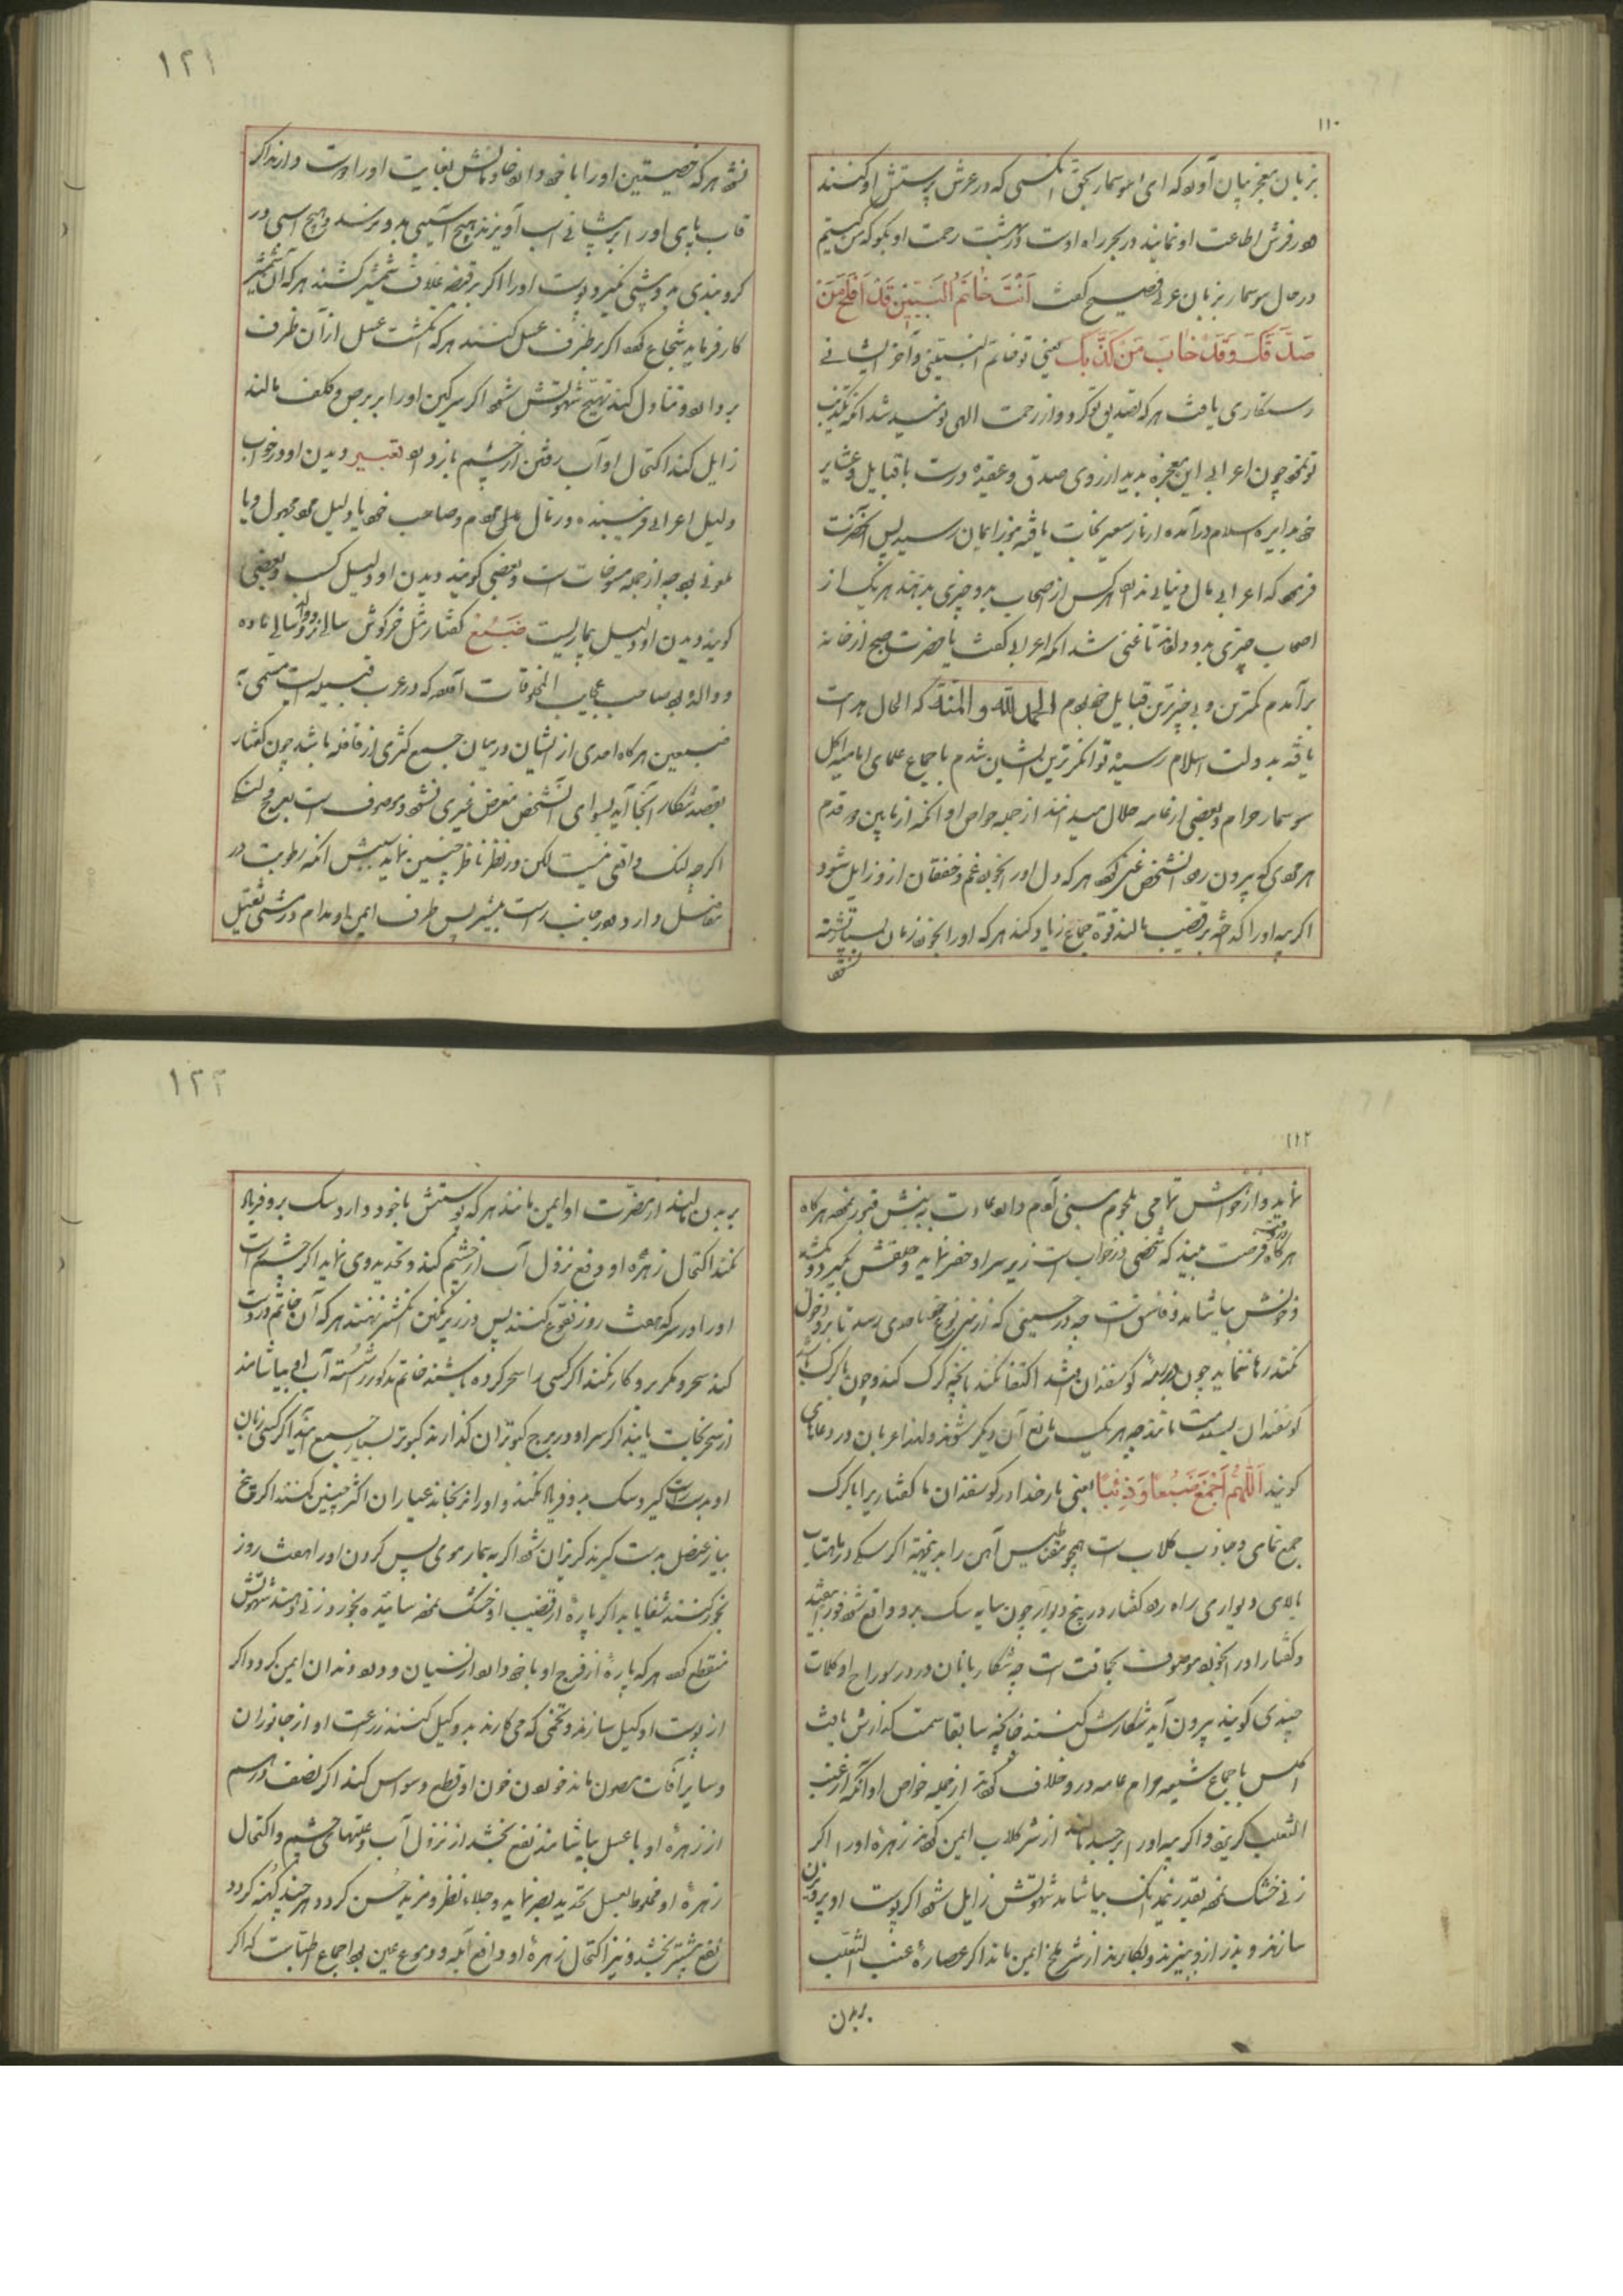 ۱۱۰
بزبان معجز بیان آورد که ای سوسمار بحق آنکسی که در عرش پرستش او کنند
و در فرش اطاعت او نمایند در بحر راه اوست و در بهشت رحمت او بگو که من کیستم
در حال سوسمار بزبان عربی فصیح گفت اَنْتَ خاتَمُ النَبِیّینَ قَدْ اَفْلَحَ مَنْ
صَدَّقَکَ وَقَدْ خابَ مَنْ کَذَّبَکَ یعنی تو خاتم النبیینی و آخر ایشانی
رستکاری یافت هر که تصدیق تو کرد و از رحمت الهی نومید شد آنکه تکذیب
تو نمود چون اعرابی این معجزه بدید از روی صدق و عقیده درست با قبایل و عشایر
خود بدایره اسلام درآمده از نار سعیر نجات یافته بنور ایمان رسید پس آنحضرت
فرمود که اعرابی مال دنیائی ندارد هرکس از اصحاب بدو چیزی بدهند هریک از
اصحاب چیزی بدو دادند تا غنی شد آنکه اعرابی گفت یا حضرت صبح از خانه
برآمدم کمترین و بی چیزترین قبایل خود بودم الحمد لله و المنة که الحال هدایت
یافته بدولت اسلام رسیده توانکرترین ایشان شدم باجماع علمای امامیه اکل
سوسمار حرام و بعضی از عامه حلال میدانند از جمله خواص او آنکه از مابین دو قدم
هر مردی که بیرون رود آنشخص غیر کند هر که دل او را بخورد غم و خفقان از و زایل شود
اکر پیه او را کداخته بر قضیب مالند قوة جماع زیاد کند هر که او را بخورد زمان بسیار تشنه
نشود
۱۲۱
نشود هر که خصیتین او را با خود دارد خادمانش بغایت او را دوست دارند اکر
قاب پای او را بر پیشانی اسب آویزند هیچ آسیبی بدو نرسد و هیچ اسبی در
کرو بندی بدو پیشی نکیرد پوست او را اکر بر قبضه غلاف شمشیر کشند هر که آن شمشیر
کار فرماید شجاع کردد اکر بر ظرف عسل کنند هر که انکشت عسل از آن ظرف
بردارد و تناول کند تهییج شهوتش شود اکر سرکین او را بر برص و کلف مالند
زایل کند اکتحال او آب رفتن از چشم باز دارد تعبیر دیدن او در خواب
دلیل اعرابی فریبنده در مال مردم و صاحب خود یا دلیل مرد مجهول و یا
ملعونی بود چه از جمله مسوخات است و بعضی کویند دیدن او دلیل کسب و بعضی
کویند دیدن او دلیل بیماریست ضَبُعْ کفتار مثل خرکوش سالی نر بود و سالی ماده
و والد بود صاحب عجایب المخلوقات آورده که در عرب قبیله ایست مسمی به
ضبعین هرکاه احدی از ایشان در میان جمع کثیری از قافله باشد چون کفتار
بقصد شکار آنجا آید بسوای آنشخص متعرض غیری نشود و موصوف است بعرج لنک
اکرچه لنک واقعی نیست لکن در نظر ناظر چنین نماید سببش آنکه رطوبت در
مفاصل دارد و در جانب راست بیشتر پس طرف ایمن او مدام در مشی ثقیل
۱۱۲
نماید و از خواهش تمامی بلحوم بنی آدم دارد عادت بر نبش قبور نموده هرکاه
هرکاه فرصت بیند که شخصی در خواب است زیر سر او حفر نماید و حلقش بکیرد و بکشد
و خونش بیاشامد و فاسق است چه در حینی که از نوع خود باحدی رسد تا برو دخول
نکند رها ننماید چون در رمه کوسفندان افتد اکتفا نکند بآنچه کرک کند و چون با کرک باشد
کوسفندان بسلامت مانند چه هریک مانع آن دیکر شوند و لهذا عربان در دعاهای
کویند اَللّهُمَّ اجْمَعْ ضَبُعاً وَذِئْباً یعنی بار خدا در کوسفندان ما کفتار را با کرک
جمع نمای و جاذب کلاب است همچو مغناطیس آهن را بدینجهة اکر سکی در ماهتاب
بالای دیواری راه رود کفتار در پنج دیوار چون سایه سک برو واقع شود فوراً بیفتد
و کفتار او را بخورد موصوف بحماقت است چه شکار بانان در در سوراخ او کلمات
چندی کویند بیرون آید شکارش کنند چنانچه سابقا سمت کذارش یافت
اکلش باجماع شیعه حرام عامه درو خلاف کردند از جمله خواص او آنکه از عنب
الثعلب کریزد و اکر پیه او را بر جسد مالند از شر کلاب ایمن کردند زهره او را اکر
زنی خشک نموده بقدر نیم دانک بیاشامد شهوتش زایل شود اکر پوست او پرویزن
سازند و بذر ازو بیزند و بکارند از شر ملخ ایمن ماند اکر عصاره عنب الثعلب
بر بدن
۱۲۲
بر بدن مالند از مضرت او ایمن مانند هر که پوستش با خود دارد سک برو فریاد
نکند اکتحال زهره او دفع نزول آب از چشم کند و تحدید وی نماید اکر چشم راست
او را در سرکه هفت روز نقوع کنند پس در زیر نکین انکشتر نهند هر که آن خاتم در دست
کند سحر و مکر برو کار نکند اکر کسی را سحر کرده باشند خاتم مذکور را شسته آب او بیاشامند
از سحر نجات یابند اکر سر او در برج کبوتران کذارند کبوتر بسیار جمع آید اکر کسی زبان
او بدست راست کیرد سک بدو فریاد نکند و او را نرنجاند عیاران اکثر چنین کنند اکر بیخ
پیاز عنصل بدست کیرند کریزان شود اکر به بیمار موی پس کردن او را هفت روز
بخور کنند شفا یابد اکر پاره از قضیب او خشک نموده سائیده بخورد زنی دهند شهوتش
منقطع کردد هر که پاره از فرج او با خود دارد از نسیان و درد دندان ایمن کردد و اکر
از پوست او کیل سازند و تخمی که می کارند بدو کیل کنند زرعت او از جانوران
و سایر آفات مصون ماند خوردن خون او قطع وسواس کند اکر نصف درهم
از زهره او با عسل بیاشامند نفع بخشد از نزول آب و علتهای چشم و اکتحال
زهره او مخلوط بعسل تحدید بصر نماید و جلاء نظر و مزید حُسن کردد هرچند کهنه کردد
نفع بیشتر بخشد و نیز اکتحال زهره او دافع آبله و دموع عین بود اجماع اطباست که اکر